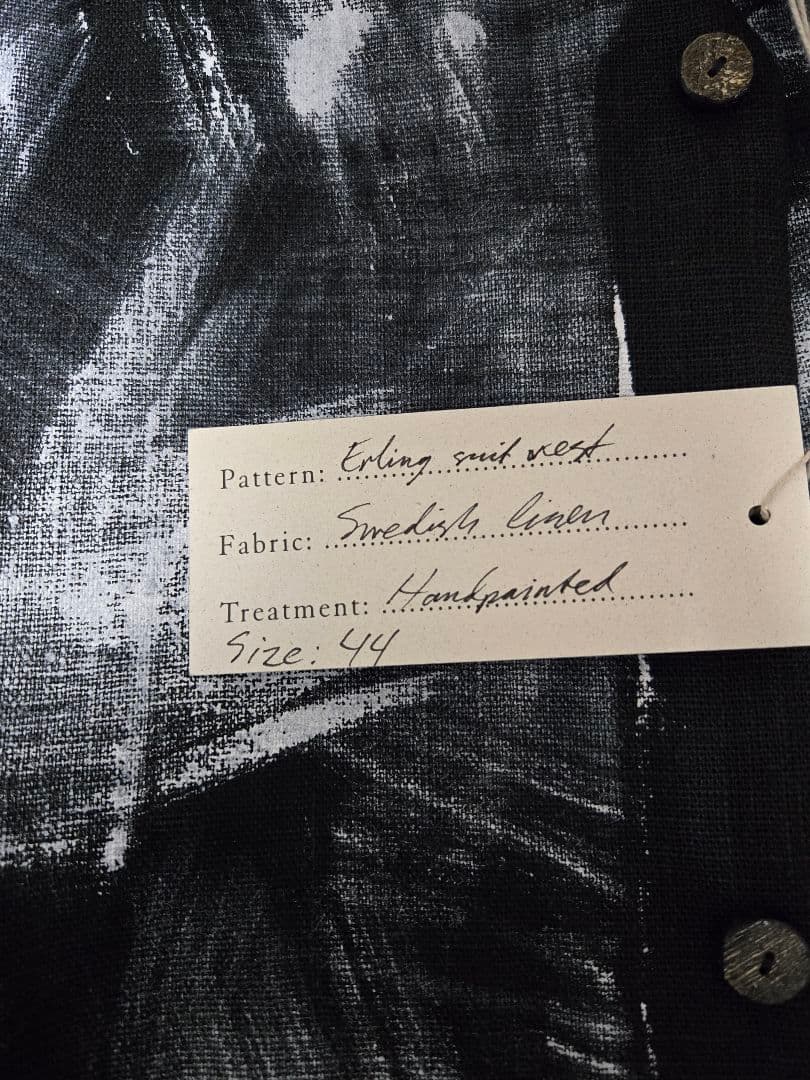 Pattern: Erling suit vest
Fabric: Swedish linen
Treatment: Handpainted
Size: 44